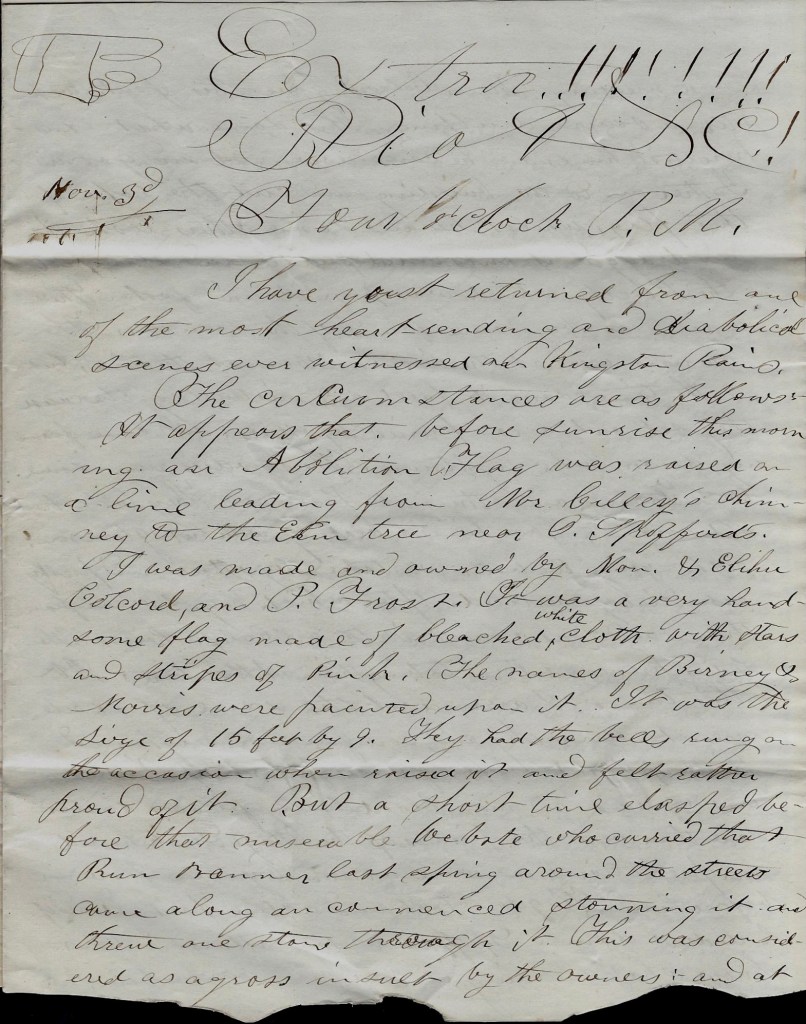 Extra..!!!!!!!!
Riot &C.!
Nov. 3d
Four o'clock P. M.
I have yust returned from one
of the most heart-rending and diabolical
scenes ever witnessed on Kingston Plains.
The circumstances are as follows:-
It appears that. before sunrise this morn
ing. an Abolition Flag was raised on
a line leading from Mr Cilley's chim-
ney to the Elm tree near O. Spofford's.
I was made and owned by Mon. & Elihu
Colcord, and P. Frost. It was a very hand-
some flag made of bleached, white cloth with stars
and stripes of Pink. The names of Birney &
Morris were painted upon it. It was the
size of 15 feet by 9. They had the bells rung on
the occasion when raised it and felt rather
proud of it. But a short time elapsed be-
fore that miserable Webste who carried that
Rum Banner last spring around the streets
came along an commenced stonning it and
threw one stone through it. This was consid-
ered as a gross insult by the owners:- and at